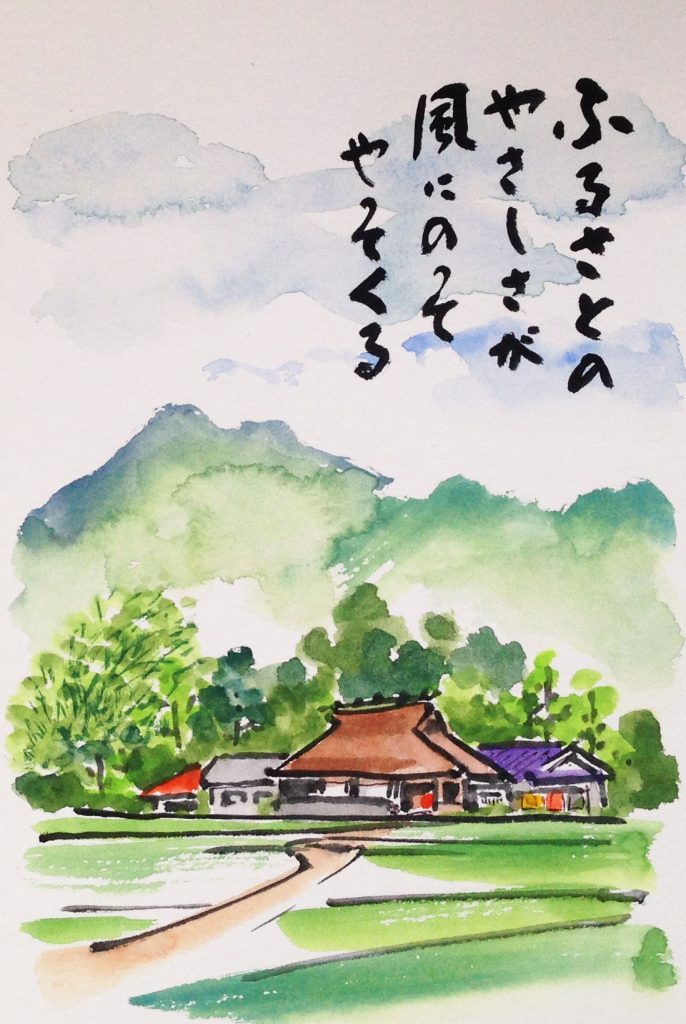 ふるさとの
やさしさが
風にのって
やってくる